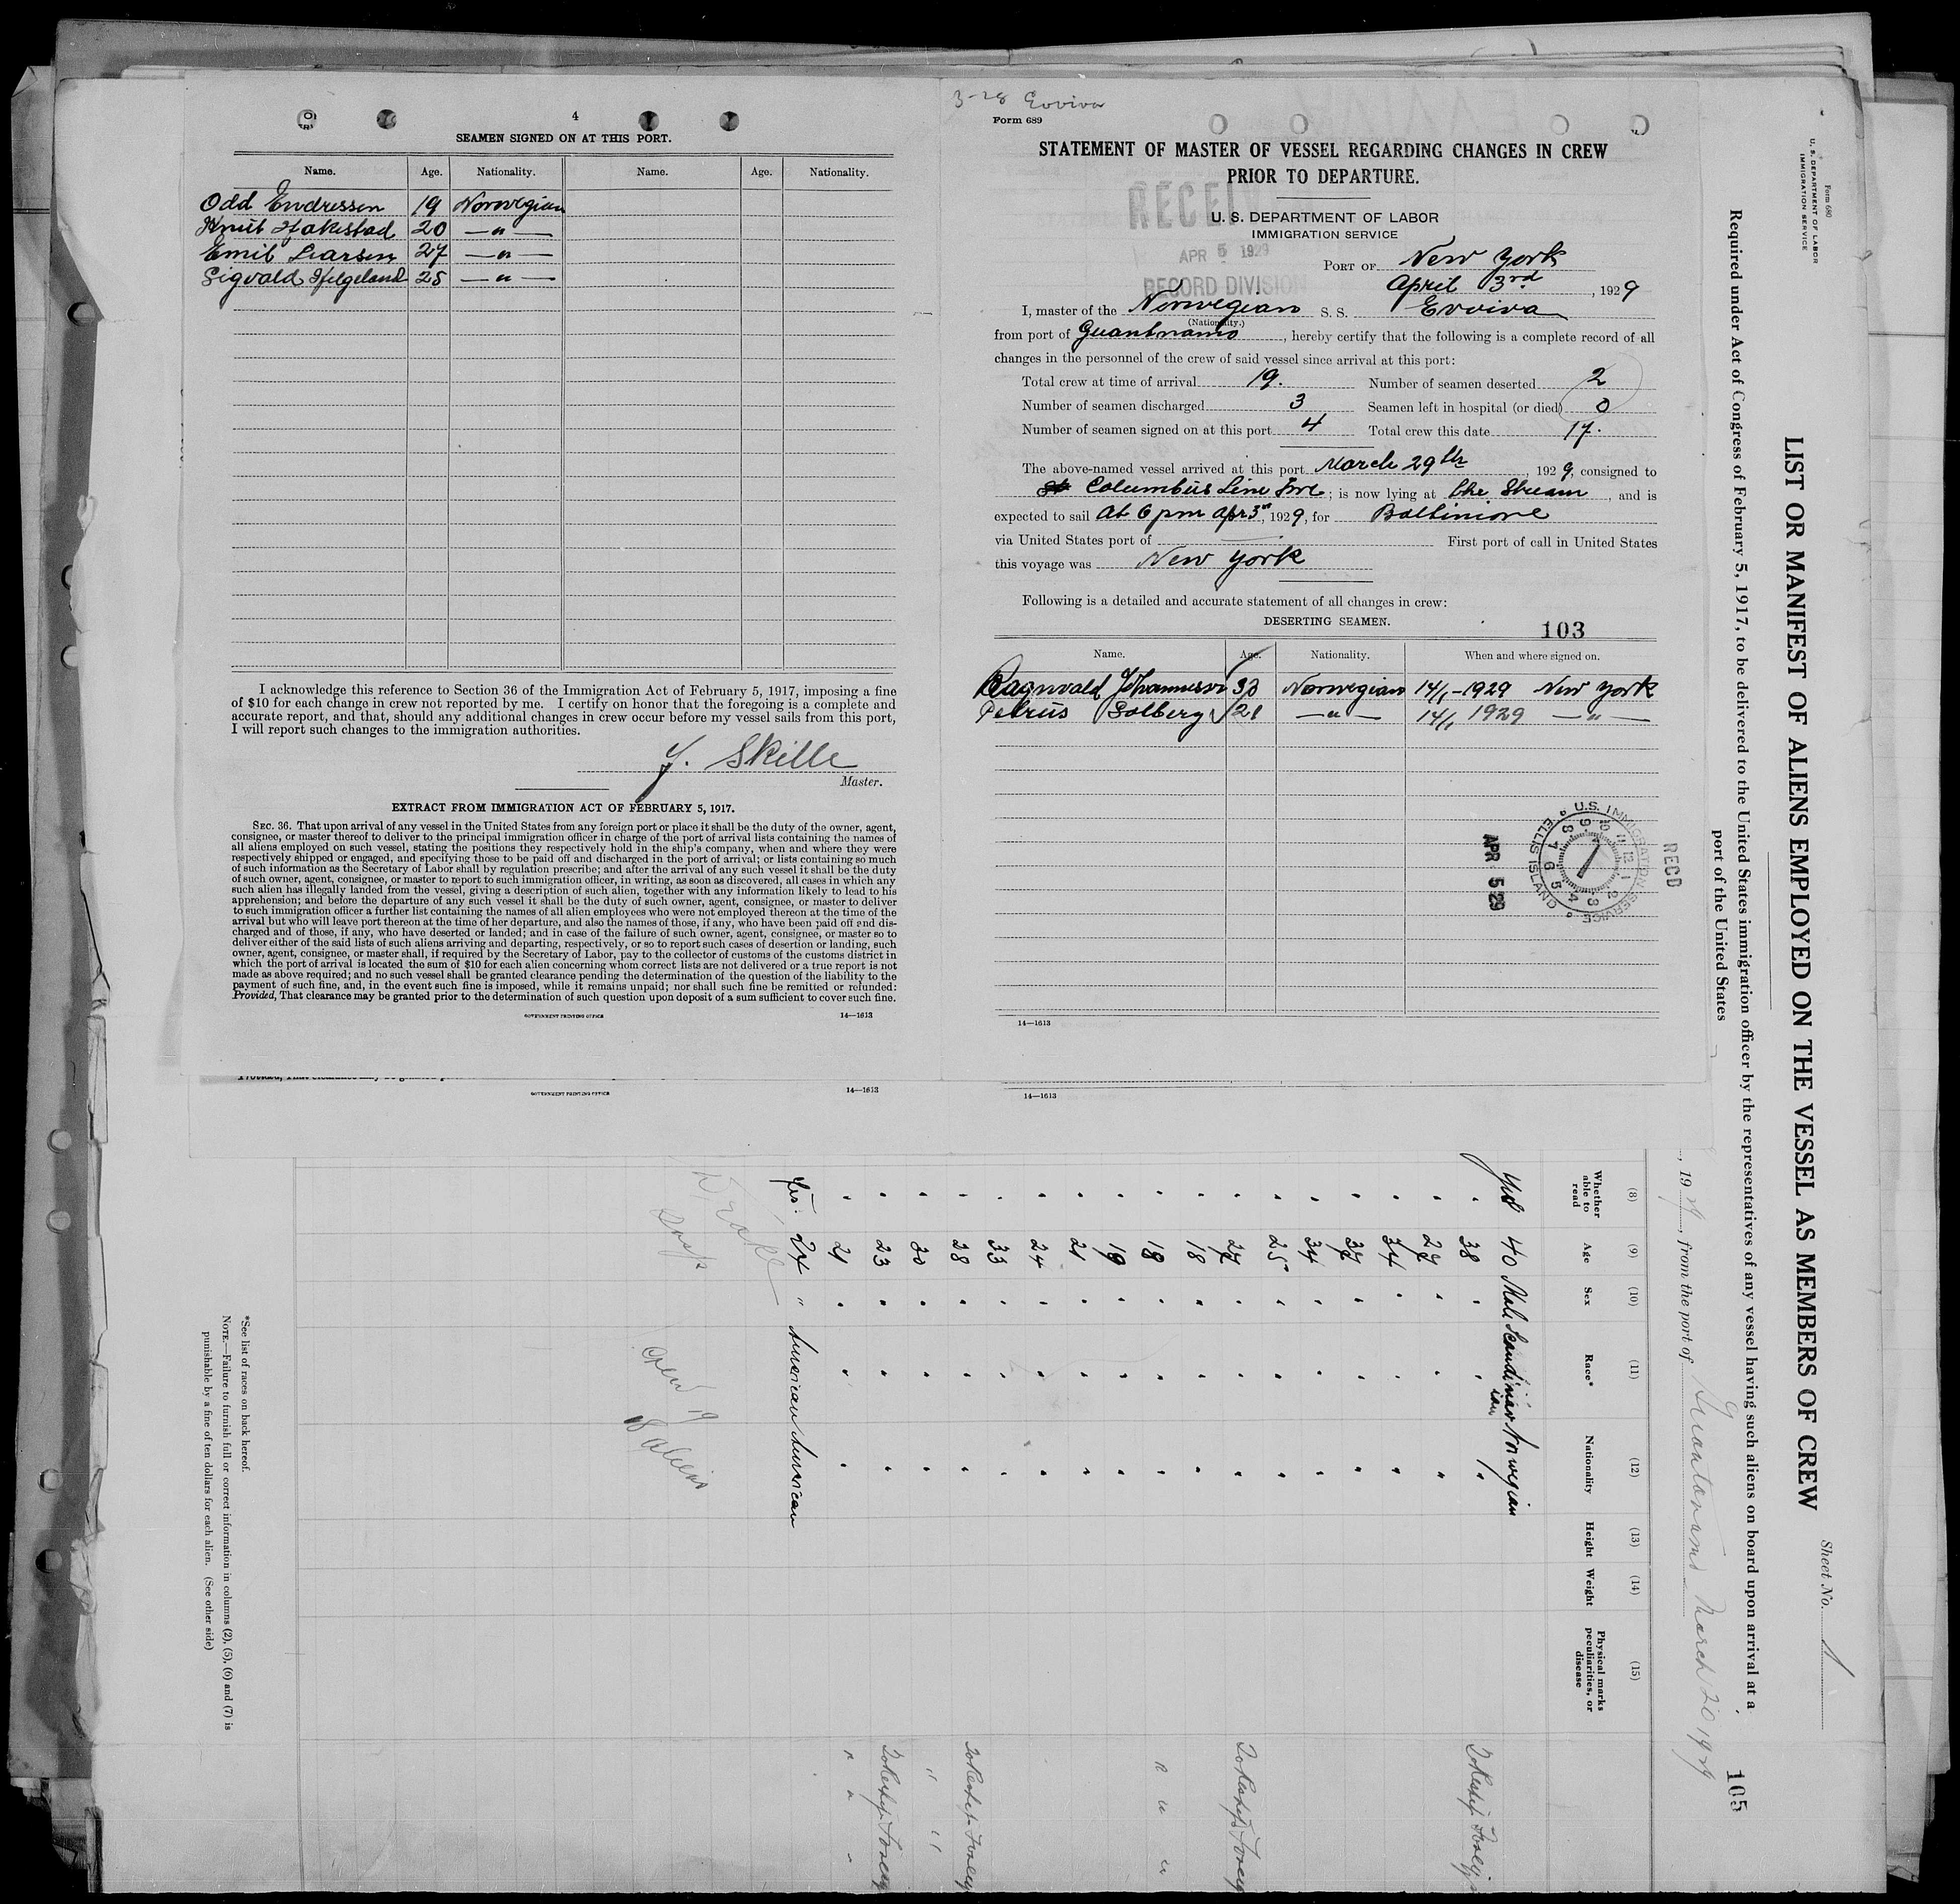 4
SEAMEN SIGNED ON AT THIS PORT.
Name. Age. Nationality. Name. Age. Nationality.
Odd Endressen 19 Norwegian
Knut Hakestad 20 —"—
Emil Larsen 27 —"—
Sigvald Helgeland 25 —"—
I acknowledge this reference to Section 36 of the Immigration Act of February 5, 1917, imposing a fine
of $10 for each change in crew not reported by me. I certify on honor that the foregoing is a complete and
accurate report, and that, should any additional changes in crew occur before my vessel sails from this port,
I will report such changes to the immigration authorities.
J. Skille
Master.
EXTRACT FROM IMMIGRATION ACT OF FEBRUARY 5, 1917.
SEC. 36. That upon arrival of any vessel in the United States from any foreign port or place it shall be the duty of the owner, agent,
consignee, or master thereof to deliver to the principal immigration officer in charge of the port of arrival lists containing the names of
all aliens employed on such vessel, stating the positions they respectively hold in the ship's company, when and where they were
respectively shipped or engaged, and specifying those to be paid off and discharged in the port of arrival; or lists containing so much
of such information as the Secretary of Labor shall by regulation prescribe; and after the arrival of any such vessel it shall be the duty
of such owner, agent, consignee, or master to report to such immigration officer, in writing, as soon as discovered, all cases in which any
such alien has illegally landed from the vessel, giving a description of such alien, together with any information likely to lead to his
apprehension; and before the departure of any such vessel it shall be the duty of such owner, agent, consignee, or master to deliver
to such immigration officer a further list containing the names of all alien employees who were not employed thereon at the time of the
arrival but who will leave port thereon at the time of her departure, and also the names of those, if any, who have been paid off and dis-
charged and of those, if any, who have deserted or landed; and in case of the failure of such owner, agent, consignee, or master so to
deliver either of the said lists of such aliens arriving and departing, respectively, or so to report such cases of desertion or landing, such
owner, agent, consignee, or master shall, if required by the Secretary of Labor, pay to the collector of customs of the customs district in
which the port of arrival is located the sum of $10 for each alien concerning whom correct lists are not delivered or a true report is not
made as above required; and no such vessel shall be granted clearance pending the determination of the question of the liability to the
payment of such fine, and, in the event such fine is imposed, while it remains unpaid; nor shall such fine be remitted or refunded:
Provided, That clearance may be granted prior to the determination of such question upon deposit of a sum sufficient to cover such fine.
GOVERNMENT PRINTING OFFICE 14—1613
3-28 Evviva
Form 689
STATEMENT OF MASTER OF VESSEL REGARDING CHANGES IN CREW
PRIOR TO DEPARTURE.
U. S. DEPARTMENT OF LABOR
IMMIGRATION SERVICE
APR 5 1929
RECORD DIVISION
PORT OF New York
April 3rd, 1929
I, master of the Norwegian S. S. Evviva
(Nationality.)
from port of Guantnamo, hereby certify that the following is a complete record of all
changes in the personnel of the crew of said vessel since arrival at this port:
Total crew at time of arrival 19. Number of seamen deserted 2
Number of seamen discharged 3 Seamen left in hospital (or died) 0
Number of seamen signed on at this port 4 Total crew this date 17.
The above-named vessel arrived at this port March 29th, 1929, consigned to
Columbus Line Inc; is now lying at the Stream, and is
expected to sail at 6 pm apr 3rd, 1929, for Baltimore
via United States port of — First port of call in United States
this voyage was New York
Following is a detailed and accurate statement of all changes in crew:
DESERTING SEAMEN.
103
Name. Age. Nationality. When and where signed on.
Ragnvald Johannesen 33 Norwegian 14/1-1929 New York
Petrus Solberg 21 —"— 14/1 1929 —"—
RECD
U.S. IMMIGRATION SERVICE ELLIS ISLAND
APR 5 29
14—1613
GOVERNMENT PRINTING OFFICE 14—1613
14—1613
Form 680
U. S. DEPARTMENT OF LABOR
IMMIGRATION SERVICE
Sheet No. 1
LIST OR MANIFEST OF ALIENS EMPLOYED ON THE VESSEL AS MEMBERS OF CREW
Required under Act of Congress of February 5, 1917, to be delivered to the United States immigration officer by the representatives of any vessel having such aliens on board upon arrival at a
port of the United States
105
, 1929, from the port of Guantanamo March 20 1929
(8) (9) (10) (11) (12) (13) (14) (15)
Whether able to read Age Sex Race* Nationality Height Weight Physical marks peculiarities, or disease
Yes 40 Male Scandinavian Norwegian
" 38 " " "
" 29 " " "
" 34 " " "
" 37 " " "
" 34 " " "
" 25 " " "
" 27 " " "
" 18 " " "
" 18 " " "
" 19 " " "
" 21 " " "
" 24 " " "
" 33 " " "
" 28 " " "
" 20 " " "
" 23 " " "
" 21 " " "
Yes 24 " American American
Crew 19
18 aliens
*See list of races on back hereof.
NOTE.—Failure to furnish full or correct information in columns (2), (5), (6) and (7) is
punishable by a fine of ten dollars for each alien. (See other side)